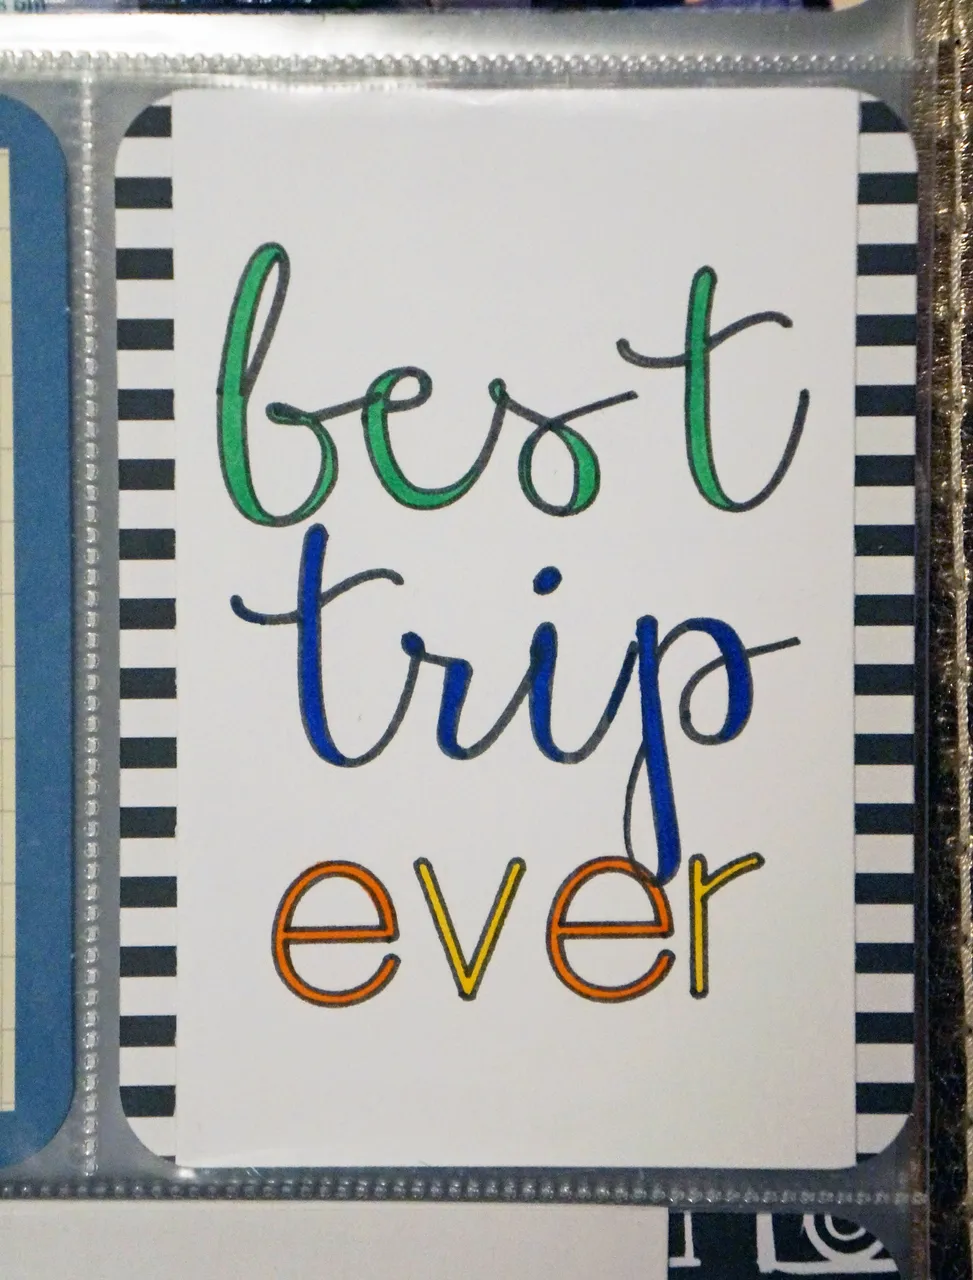 best
trip
ever